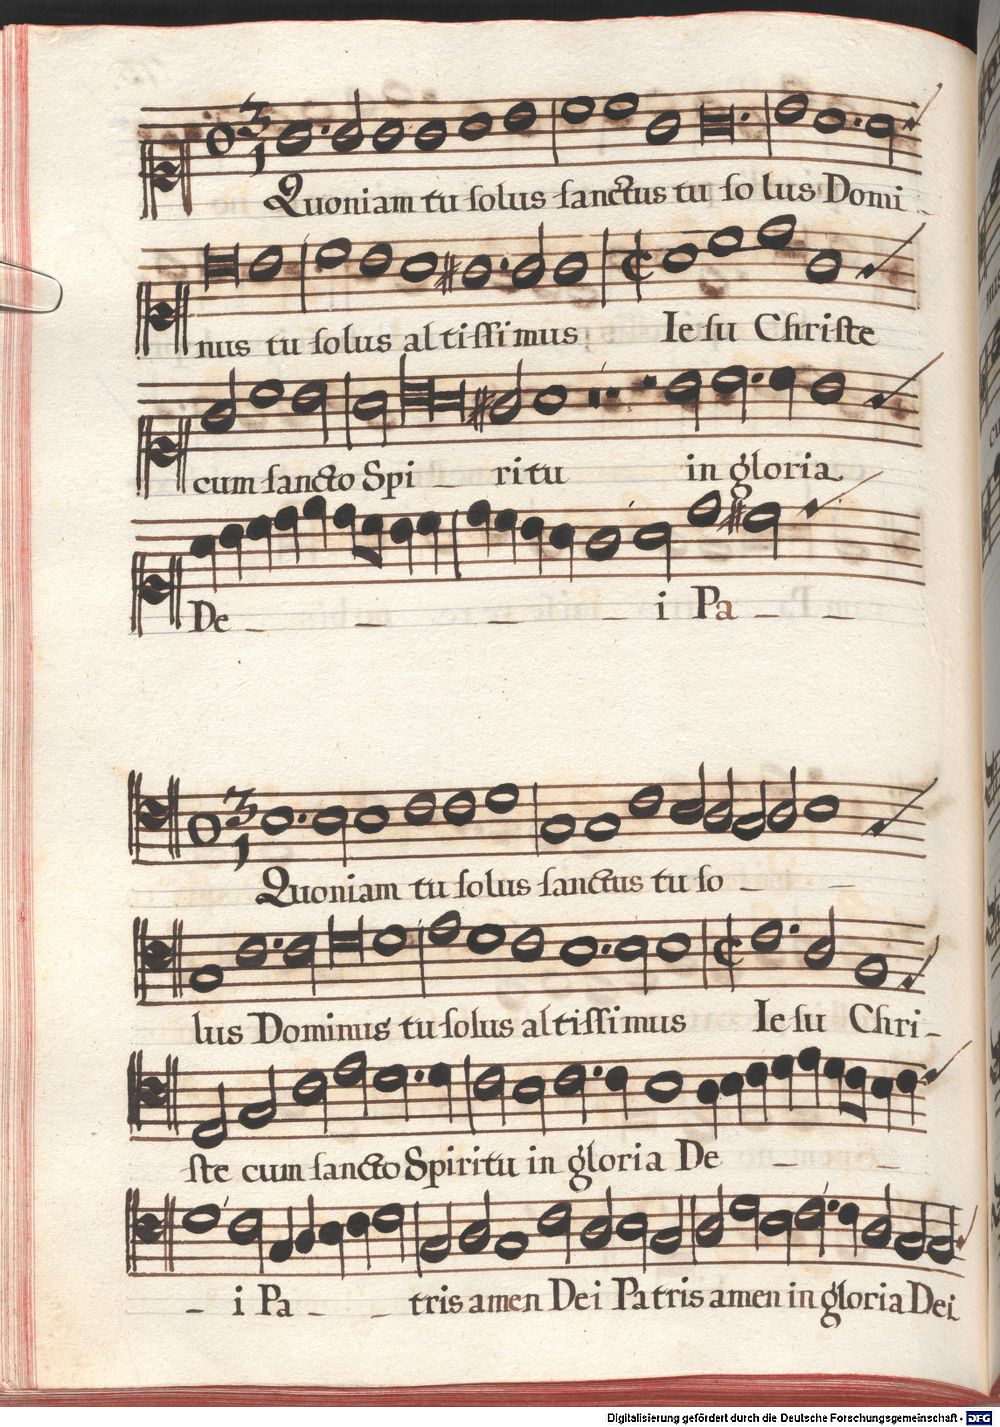 Quoniam tu solus sanctus tu so lus Domi _
nus tu solus altissimus Iesu Christe
cum sancto Spi _ ritu in gloria
De _ _ _ _ i Pa _ _
Quoniam tu solus sanctus tu so _ _
lus Dominus tu solus altissimus Iesu Chri _
ste cum sancto Spiritu in gloria De _ _
_ i Pa _ _ tris amen Dei Patris amen in gloria Dei
Digitalisierung gefördert durch die Deutsche Forschungsgemeinschaft - DFG